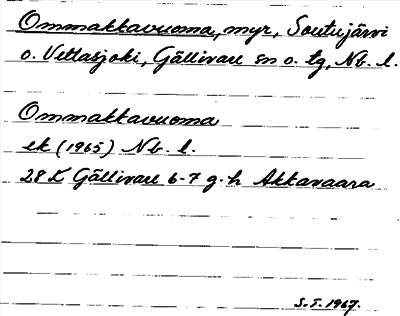 Ommakkavuoma, myr, Soutujärvi
o. Vettasjoki, Gällivare sn o. tg, Nb. l.
Ommakkavuoma
ek (1965) Nb. l.
28K Gällivare 6-7 g-h Akkavaara
S.T. 1967.